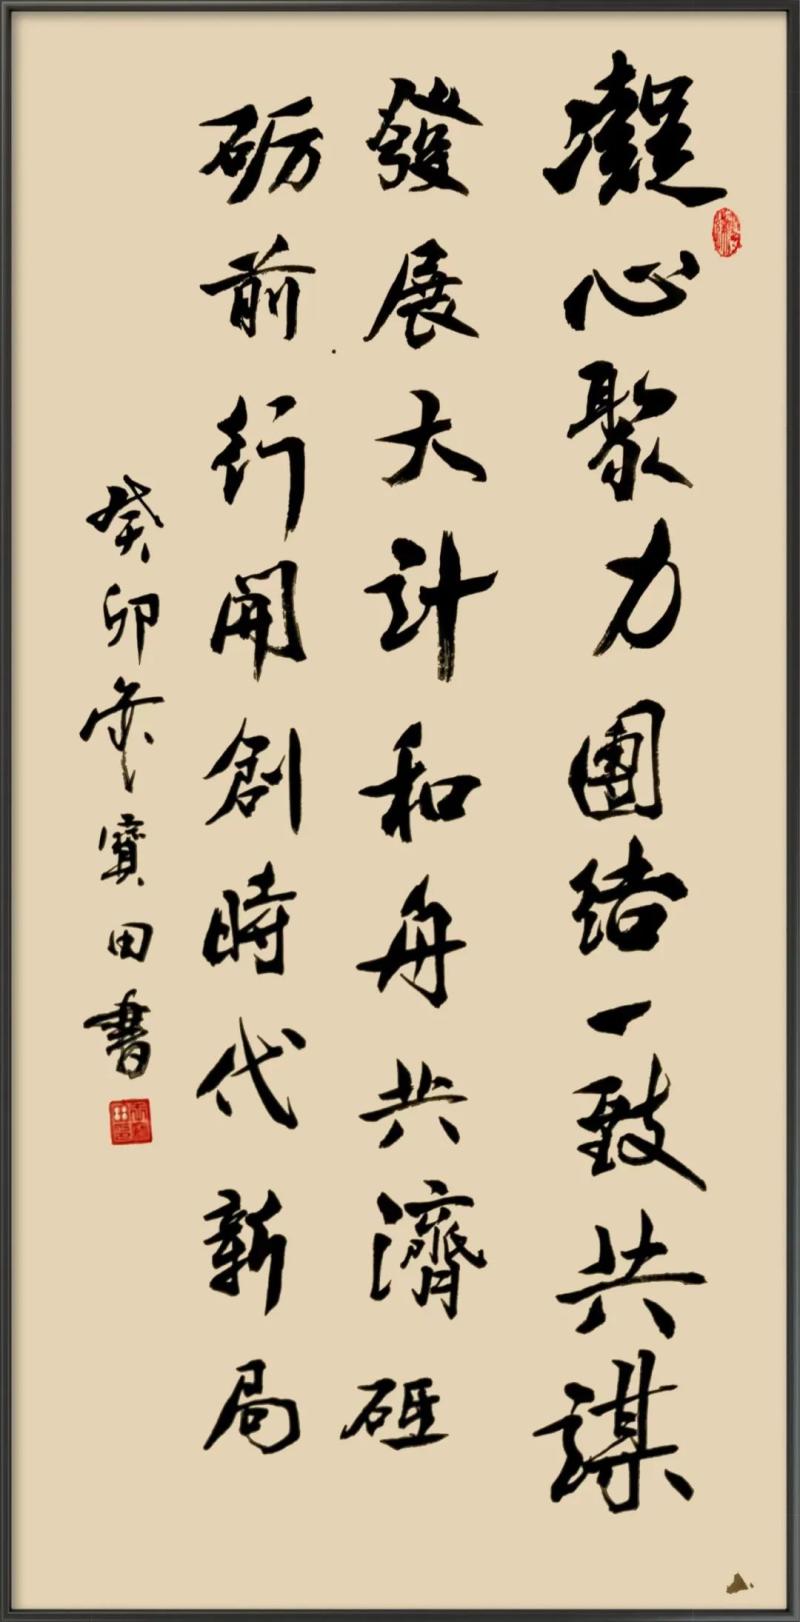 凝心聚力團結一致共謀
發展大計和舟共濟砥
砺前行開創時代新局
癸卯年寶田書